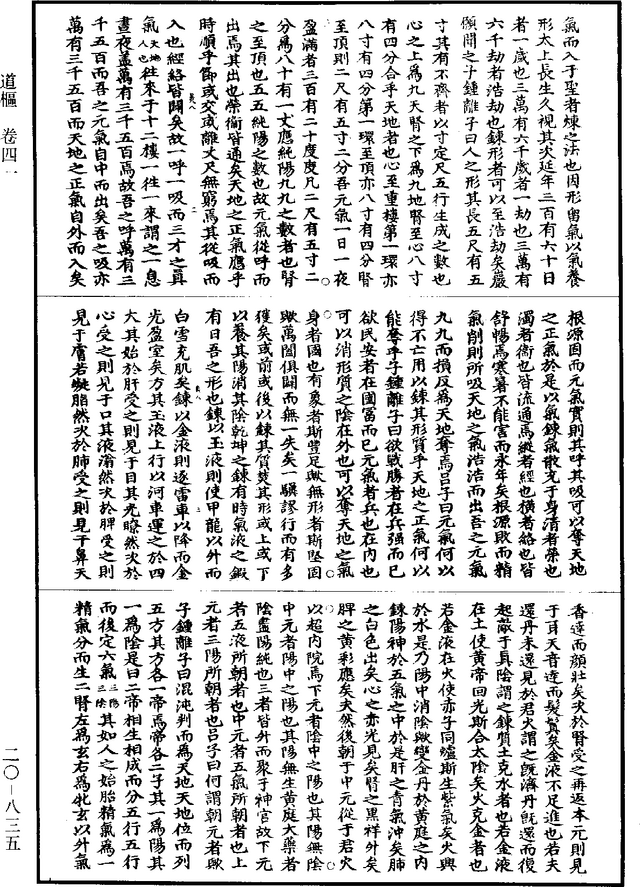 氣而入于聖者煉之法也因形留氣以氣養
形太上長生久視其次延年三百有六十日
者一歲也三萬有六千歲者一劫也三萬有
六千劫者浩劫也鍊形者可以至浩劫矣嚴
願聞之乎鍾離子曰人之形其長五尺有五
寸其有不齊者以寸定尺五行生成之數也
心之上爲九天腎之下爲九地腎至心八寸
有四分合乎天地者也心至重樓第一環亦
八寸有四分第一環至頂亦八寸有四分腎
至頂則二尺有五寸二分吾元氣一日一夜
盈滿者三百有二十度度凡二尺有五寸二
分爲八十有一丈應純陽九九之數者也腎
之至頂也五五純陽之數也故元氣從呼而
出焉其出也榮衛皆通矣天地之正氣應乎
時順乎節或交或離丈尺無窮焉其從吸而
入也經絡皆闢矣故一呼一吸而三才之真
氣天地人也往來于十二樓一往一來謂之一息
晝夜蓋萬有三千五百焉故吾之呼萬有三
千五百而吾之元氣自中而出矣吾之吸亦
萬有三千五百而天地之正氣自外而入矣
根源固而元氣實則其呼其吸可以奪天地
之正氣於是以氣鍊氣散充于身清者榮也
濁者衛也皆流通焉縱者經也橫者絡也皆
舒暢焉寒暑不能害而永年矣根源敗而精
氣削則所吸天地之氣浩浩而出吾之元氣
九九而損反爲天地奪焉呂子曰元氣何以
得不亡用以鍊其形質乎天地之正氣何以
能奪乎子鍾離子曰欲戰勝者在兵强而已
欲民安者在國富而已元氣者兵也在内也
可以消形質之陰在外也可以奪天地之氣
身者國也有象者斯豐足歟無形者斯堅固
歟萬闔俱闢而無一失矣一騾謬行而有多
獲矣或前或後以鍊其質焚其形或上或下
以養其陽消其陰乾坤之鍊有時氣液之鍜
有日吾之形也鍊以玉液則使甲龍以外而
白雪充肌矣鍊以金液則逐雷車以降而金
光盈室矣方其玉液上行以河車運之於四
大其始於肝受之則見于目其光瞭然次於
心受之則見于口其液滃然次於脾受之則
見于膚若凝脂然次於肺受之則見于鼻天
香達而顔壯矣次於腎受之再返本元則見
于耳天音達而髮鬒矣金液不足進也若夫
還丹未還見於君火謂之既濟丹既還而復
起敵于真陰謂之鍊質土克水者也若金液
在土使黄帝回光斯合太陰矣火克金者也
若金液在火使赤子同爐斯生紫氣矣火興
於水是乃陽中消陰歟變金丹於黄庭之内
鍊陽神於五氣之中於是肝之青氣沖矣肺
之白色出矣心之赤光見矣腎之黑祥外矣
脾之黄彩應矣夫然後朝于中元從于君火
以超内院焉下元者陰中之陽也其陽無陰
中元者陽中之陽也其陽無生黄庭大藥者
陰盡陽純也三者皆外而聚于神宫故下元
者五液所朝者也中元者五氣所朝者也上
元者三陽所朝者也呂子曰何謂朝元者歟
子鍾離子曰混沌判而爲天地天地位而列
五方其方各一帝焉帝各二子其一爲陽其
一爲陰是曰二帝相生相成而分五行五行
而後定六氣三陽三陰其如人之始胎精氣爲一
精氣分而生二腎左爲玄右爲牝玄以外氣
道樞 卷四一
二〇—八三五